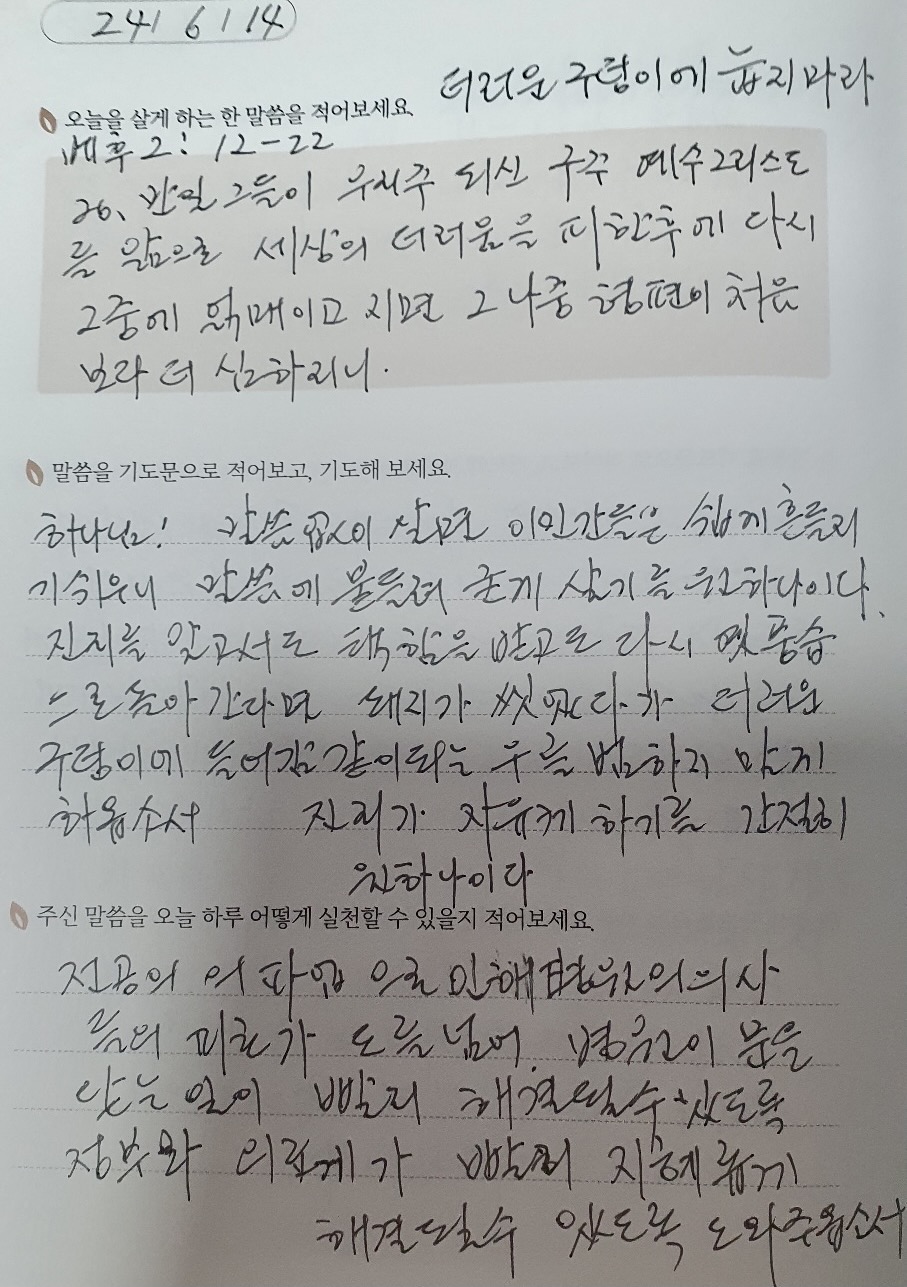 24 / 6 / 14
더러운 구덩이에 눕지마라
오늘을 살게 하는 한 말씀을 적어보세요.
베후 2 : 12 - 22
20. 만일 그들이 우리주 되신 구주 예수그리스도
를 앎으로 세상의 더러움을 피한후에 다시
그중에 얽매이고 지면 그 나중 형편이 처음
보다 더 심하리니.
말씀을 기도문으로 적어보고, 기도해 보세요.
하나님! 말씀없이 살면 이인간들은 쉽게흔들리
기쉬우니 말씀에 붙들려 굳게 살기를 원하나이다.
진리를 알고서도 택함을 받고도 다시 옛풍습
으로 돌아 간다면 돼지가 씻었다가 더러운
구덩이에 들어감같이되는 우를 범하지 않게
하옵소서 진리가 자유케 하기를 간절히
원하나이다
주신 말씀을 오늘 하루 어떻게 실천할 수 있을지 적어보세요.
전공의 의 파업 으로 인해 병원의의사
들의 피로가 도를넘어 병원이 문을
닫는 일이 빨리 해결될수 있도록
정부와 의료계가 빨리 지혜롭게
해결될수 있도록 도와주옵소서